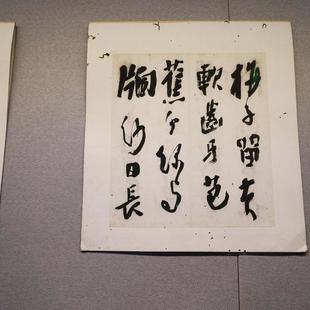 梅子留
軟齒牙芭
蕉分綠与
紗日長